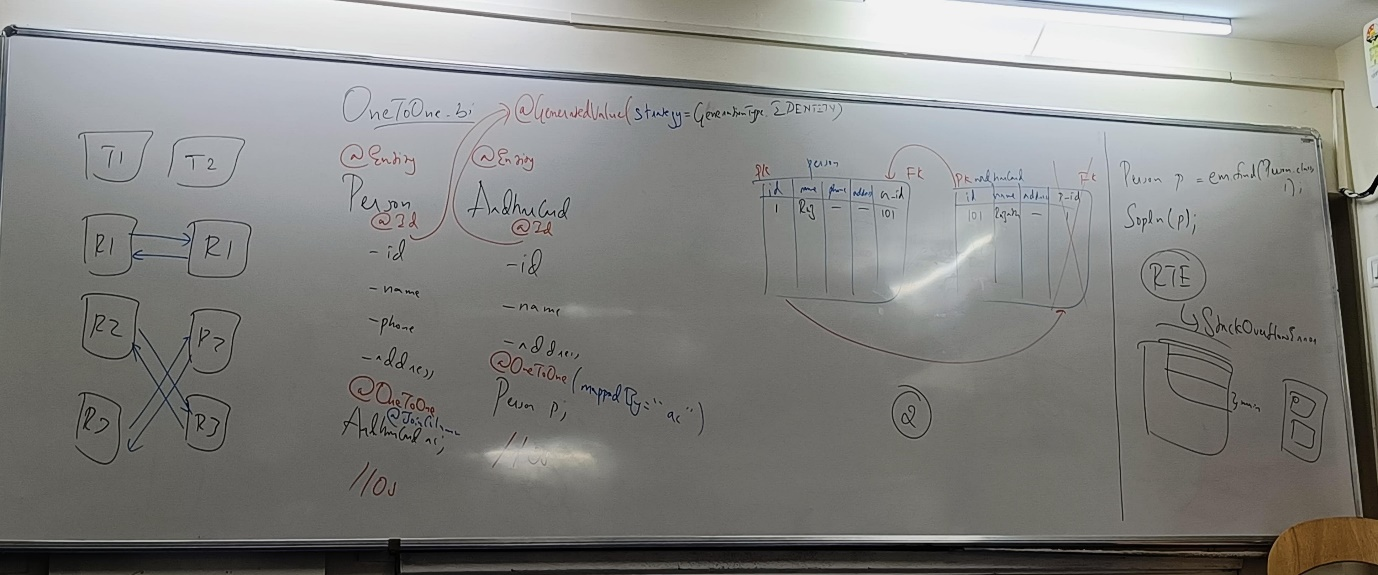 OneToOne_bi
@GeneratedValue(strategy=GenerationType.IDENTITY)
T1 T2
R1 R1
R2 R2
R3 R3
@Entity
Person
@Id
-id
-name
-phone
-address
@OneToOne
@JoinColumn
AadharCard ac;
//GS
@Entity
AadharCard
@Id
-id
-name
-address
@OneToOne(mappedBy="ac")
Person p;
//GS
person
PK FK
id name phone address a_id
1 Raj - - 101
aadharCard
PK FK
id name address P_id
101 -
2
Person p = em.find(Person.class
1);
Sopln(p);
RTE
StackOverflowError
main
P